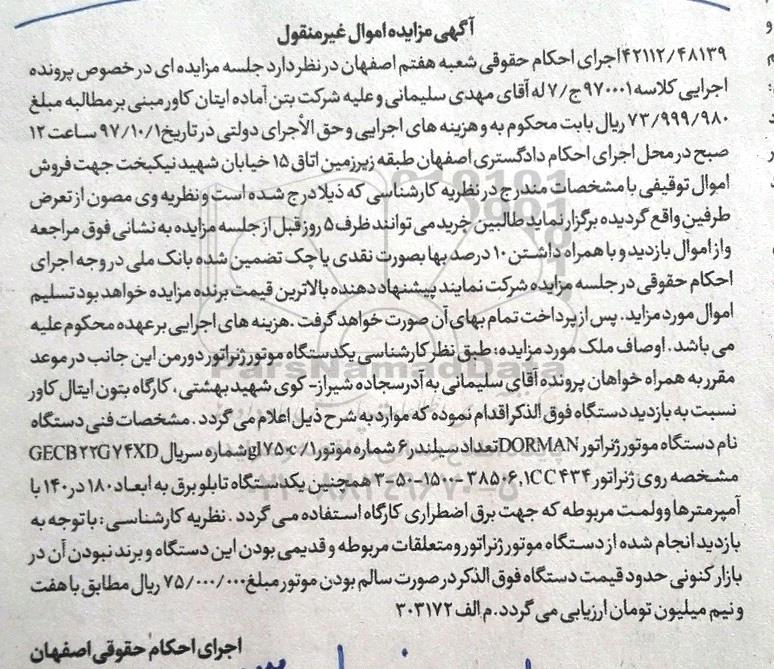 آگهی مزایده اموال غیرمنقول
۴۲۱۱۲/۴۸۱۳۹ اجرای احکام حقوقی شعبه هفتم اصفهان در نظر دارد جلسه مزایده ای در خصوص پرونده
اجرایی کلاسه ۹۷۰۰۰۱ ج/۷ له آقای مهدی سلیمانی و علیه شرکت بتن آماده ایتان کاور مبنی بر مطالبه مبلغ
۷۳/۹۹۹/۹۸۰ ریال بابت محکوم به و هزینه های اجرایی و حق الأجرای دولتی در تاریخ ۹۷/۱۰/۱ ساعت ۱۲
صبح در محل اجرای احکام دادگستری اصفهان طبقه زیرزمین اتاق ۱۵ خیابان شهید نیکبخت جهت فروش
اموال توقیفی با مشخصات مندرج در نظریه کارشناسی که ذیلا درج شده است و نظریه وی مصون از تعرض
طرفین واقع گردیده برگزار نماید طالبین خرید می توانند ظرف ۵ روز قبل از جلسه مزایده به نشانی فوق مراجعه
و از اموال بازدید و با همراه داشتن ۱۰ درصد بها بصورت نقدی یا چک تضمین شده بانک ملی در وجه اجرای
احکام حقوقی در جلسه مزایده شرکت نمایند پیشنهاد دهنده بالاترین قیمت برنده مزایده خواهد بود تسلیم
اموال مورد مزاید. پس از پرداخت تمام بهای آن صورت خواهد گرفت . هزینه های اجرایی بر عهده محکوم علیه
می باشد . اوصاف ملک مورد مزایده: طبق نظر کارشناسی یکدستگاه موتور ژنراتور دورمن این جانب در موعد
مقرر به همراه خواهان پرونده آقای سلیمانی به آدرس جاده شیراز- کوی شهید بهشتی ، کارگاه بتون ایتال کاور
نسبت به بازدید دستگاه فوق الذکر اقدام نموده که موارد به شرح ذیل اعلام می گردد . مشخصات فنی دستگاه
نام دستگاه موتور ژنراتور DORMAN تعداد سیلندر ۶ شماره موتور gl۷۵۰c/۱ شماره سریال GECB۲۲G۷۴XD
مشخصه روی ژنراتور ۱CC۴۳۴, ۳۸۵۰۶ -۱۵۰۰-۵۰-۳ همچنین یکدستگاه تابلو برق به ابعاد ۱۸۰ در ۱۴۰ با
آمپرمترها وولمت مربوطه که جهت برق اضطراری کارگاه استفاده می گردد . نظریه کارشناسی : با توجه به
بازدید انجام شده از دستگاه موتور ژنراتور و متعلقات مربوطه و قدیمی بودن این دستگاه و برند نبودن آن در
بازار کنونی حدود قیمت دستگاه فوق الذکر در صورت سالم بودن موتور مبلغ ۷۵/۰۰۰/۰۰۰ ریال مطابق با هفت
و نیم میلیون تومان ارزیابی می گردد. م الف ۳۰۳۱۷۲
اجرای احکام حقوقی اصفهان
ParsNamadData